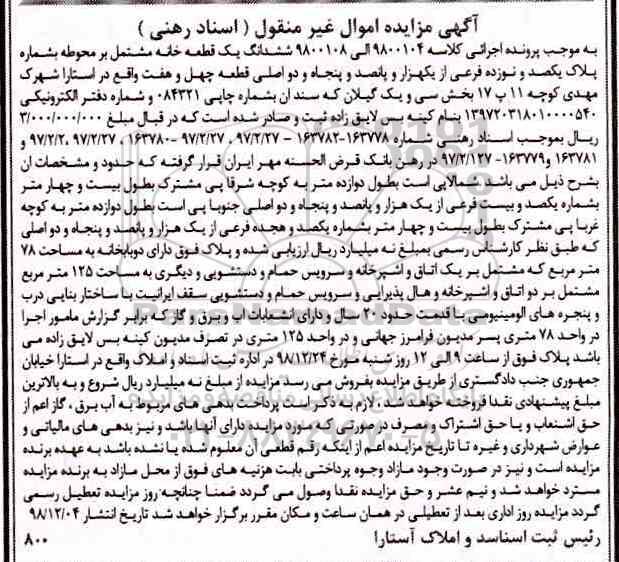 آگهی مزایده اموال غیر منقول ( اسناد رهنی )
به موجب پرونده اجرائی کلاسه ۹۸۰۰۱۰۴ الی ۹۸۰۰۱۰۸ ششدانگ یک قطعه خانه مشتمل بر محوطه بشماره
پلاک یکصد و نوزده فرعی از یکهزار و پانصد و پنجاه و دو اصلی قطعه چهل و هفت واقع در استارا شهرک
مهدی کوچه ۱۱ پ ۱۷ بخش سی و یک گیلان که سند ان بشماره چاپی ۰۸۴۳۲۱ و شماره دفتر الکترونیکی
۱۳۹۷۲۰۳۱۸۰۱۰۰۰۰۵۴۰ بنام کینه بس لایق زاده ثبت و صادر شده است که در قبال مبلغ ۳/۰۰۰/۰۰۰/۰۰۰
ریال بموجب اسناد رهنی شماره ۱۶۳۷۷۸-۱۶۳۷۸۲ - ۹۷/۲/۲۷ ، ۹۷/۲/۲۷ -۱۶۳۷۸۰ ، ۹۷/۲/۲۷ ،۹۷/۲/۲ و
۱۶۳۷۸۱ و۱۶۳۷۷۹- ۹۷/۲/۱۲۷ در رهن بانک قرض الحسنه مهر ایران قرار گرفته که حدود و مشخصات ان
بشرح ذیل می باشد شمالاپی است بطول دوازده متر به کوچه شرقا پی مشترک بطول بیست و چهار متر
بشماره یکصد و بیست فرعی از یک هزار و پانصد و پنجاه و دو اصلی جنوبا پی است بطول دوازده متر به کوچه
غربا پی مشترک بطول بیست و چهار متر بشماره یکصد و هجده فرعی از یک هزار و پانصد و پنجاه و دو اصلی
که طبق نظر کارشناس رسمی بمبلغ نه میلیارد ریال ارزیابی شده و پلاک فوق دارای دوبابخانه به مساحت ۷۸
متر مربع که مشتمل بر یک اتاق و اشپرخانه و سرویس حمام و دستشویی و دیگری به مساحت ۱۲۵ متر مربع
مشتمل بر دو اتاق و اشپرخانه و هال پذیرایی و سرویس حمام و دستشویی سقف ایرانیت با ساختار بنایی درب
و پنجره های الومینیومی با قدمت حدود ۲۰ سال و دارای انشعابات اب و برق و گاز که برابر گزارش مامور اجرا
در واحد ۷۸ متری پسر مدیون فرامرز جهانی و در واحد ۱۲۵ متری در تصرف مدیون کینه بس لایق زاده می
باشد پلاک فوق از ساعت ۹ الی ۱۲ روز شنبه مورخ ۹۸/۱۲/۲۴ در اداره ثبت اسناد و املاک واقع در استارا خیابان
جمهوری جنب دادگستری از طریق مزایده بفروش می رسد مزایده از مبلغ نه میلیارد ریال شروع و به بالاترین
مبلغ پیشنهادی نقدا فروخته خواهد شد . لازم به ذکر ست پرداخت بدهی های مربوط به آب برق ، گاز اعم از
حق اشعاب و یا حق اشتراک و مصرف در صورتی که مورد مزایده دارای آنها باشد و نیز بدهی های مالیاتی و
عوارض شهرداری و غیره تا تاریخ مزایده اعم از اینکه رقم قطعی آن معلوم شده یا نشده باشد به عهده برنده
مزایده است و نیز در صورت وجود مازاد وجوه پرداختی بابت هزینه های فوق از محل مازاد به برنده مزایده
مسترد خواهد شد و نیم عشر و حق مزایده نقدا وصول می گردد ضمنا چنانچه روز مزایده تعطیل رسمی
گردد مزایده روز اداری بعد از تعطیلی در همان ساعت و مکان مقرر برگزار خواهد شد تاریخ انتشار ۹۸/۱۲/۰۴
رئیس ثبت اسناسد و املاک آستارا ۸۰۰